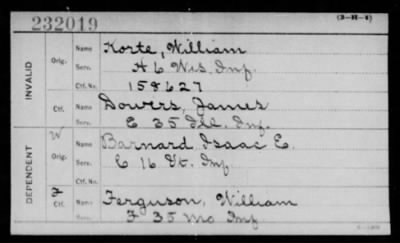 232019
(3-H-4)
INVALID
Orig. Name Korte, William
Serv. H 6 Wis Inf.
Ctf. No. 158627
Ctf. Name Dowers, James
Serv. E 35 Ill. Inf.
DEPENDENT
W Orig. Name Barnard Isaac E.
Serv. C 16 Vt. Inf
Ctf. No.
Ctf. Name Ferguson, William
Serv. F 35 Mo Inf